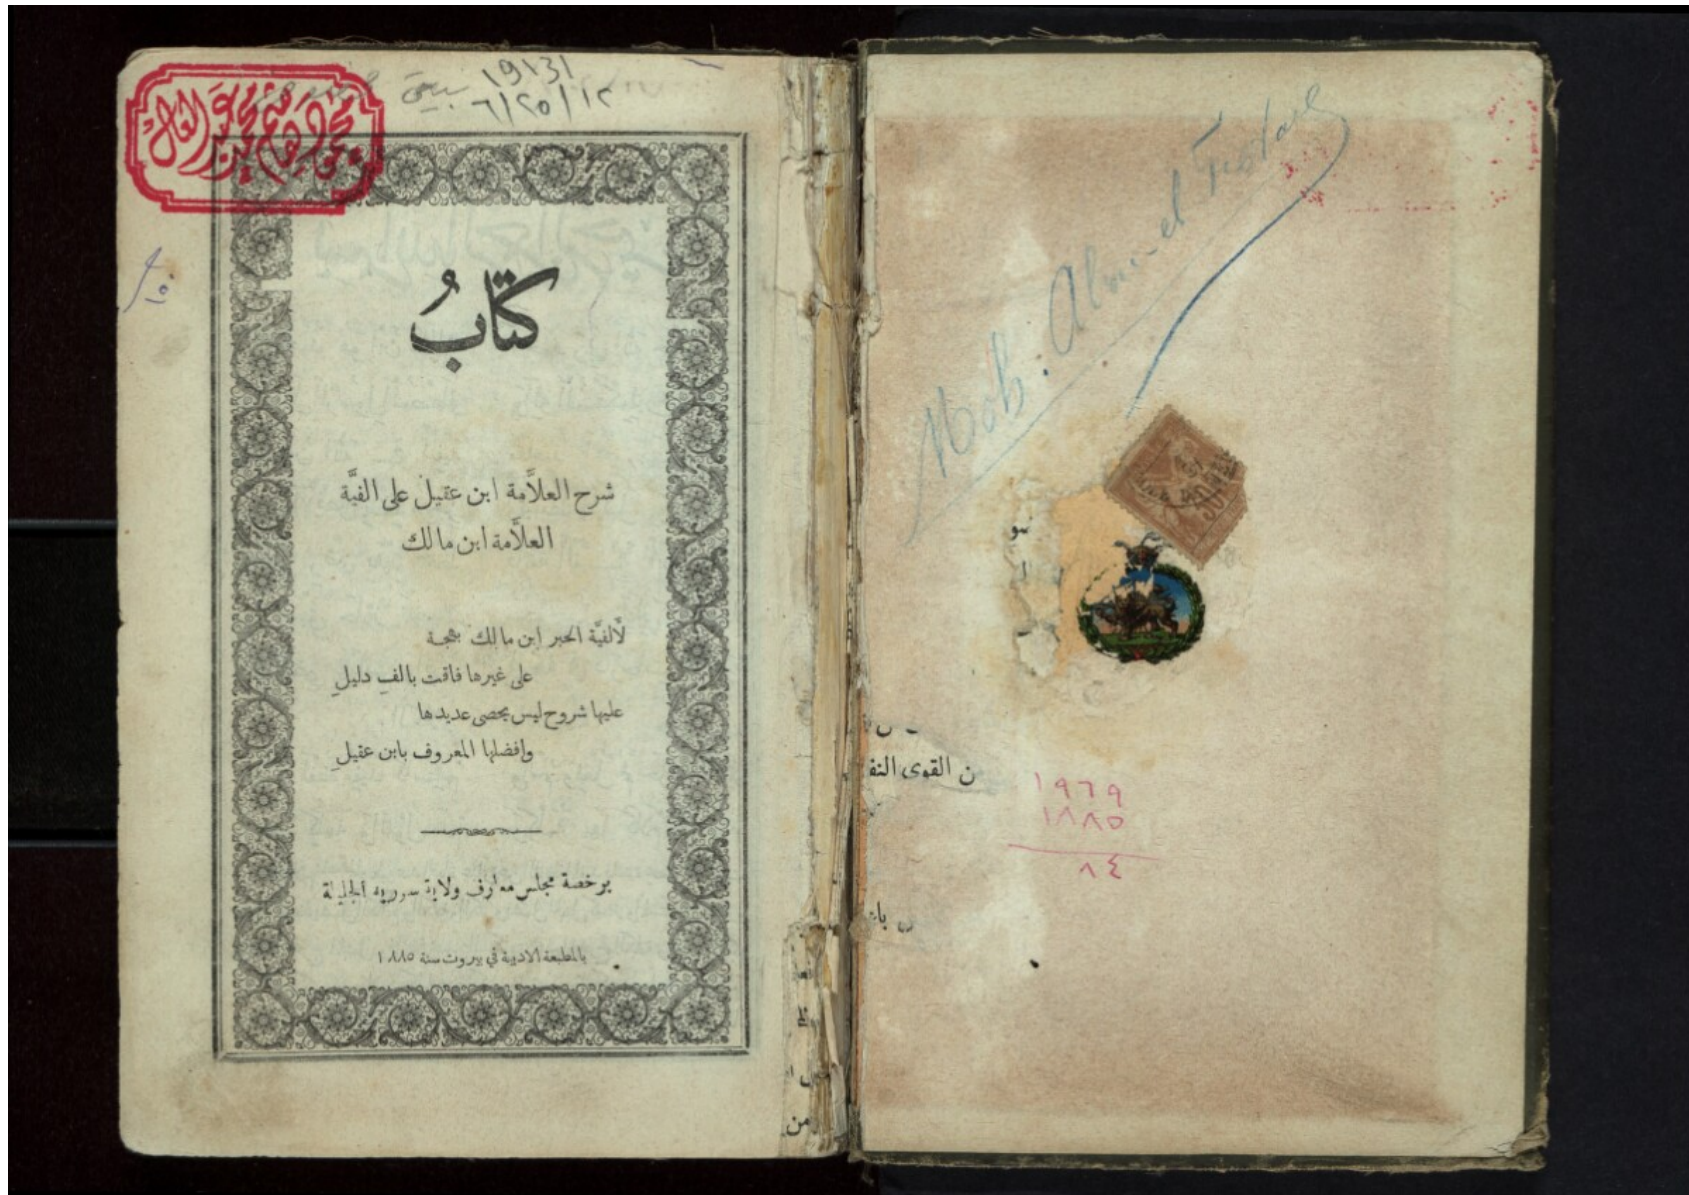 19131
٦/٢٥/١٢
كتابُ
شرح العلاَّمة ابن عقيل على الفيَّة
العلاَّمة ابن مالك
لألفيَّة الحبر ابن مالك بهجة
على غيرها فاقت بالف دليلِ
عليها شروح ليس يحصى عديدها
وافضلها المعروف بابن عقيلِ
برخصة مجلس معارف ولاية سورية الجليلة
بالمطبعة الادبية في بيروت سنة ١٨٨٥
من
Moh.
ن القوى النف
١٩٦٩
١٨٨٥
٨٤